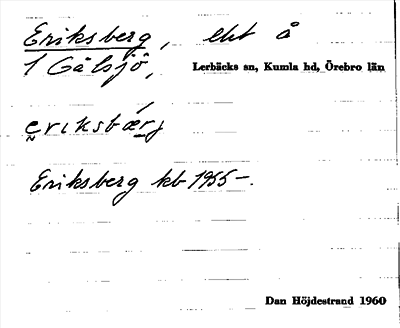 Eriksberg, ebt å
1 Gålsjö, Lerbäcks sn, Kumla hd, Örebro län
eriksbærj
Eriksberg kb 1955–.
Dan Höjdestrand 1960